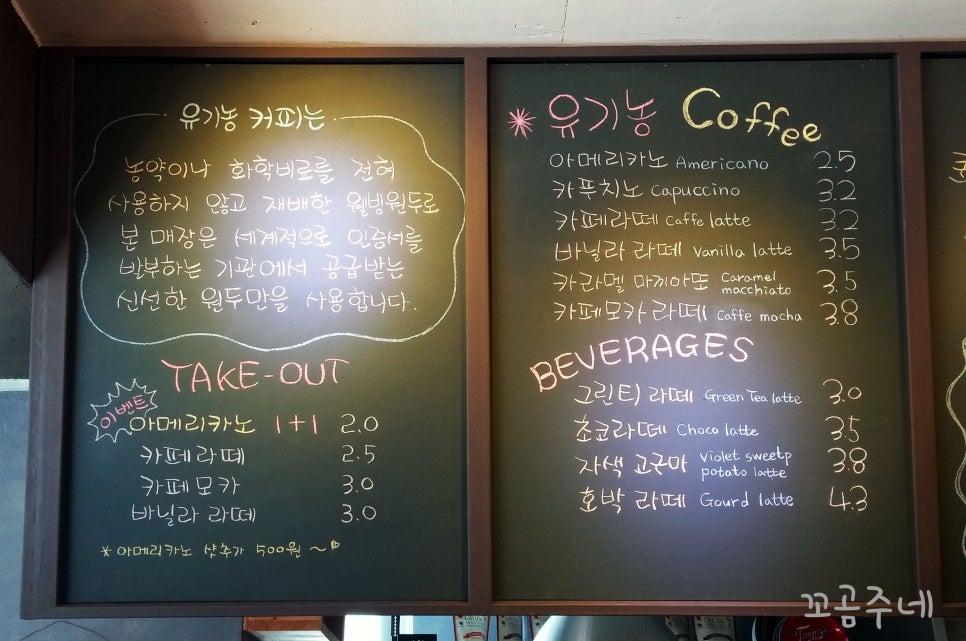 유기농 커피는
농약이나 화학비료를 전혀
사용하지 않고 재배한 웰빙원두로
본 매장은 세계적으로 인증서를
발부하는 기관에서 공급받는
신선한 원두만을 사용합니다.
TAKE-OUT
이벤트
아메리카노 1+1 2.0
카페라떼 2.5
카페모카 3.0
바닐라 라떼 3.0
*아메리카노 샷추가 500원 ~
* 유기농 Coffee
아메리카노 Americano 2.5
카푸치노 Capuccino 3.2
카페라떼 Caffe latte 3.2
바닐라 라떼 Vanilla latte 3.5
카라멜 마끼아또 Caramel macchiato 3.5
카페모카 라떼 Caffe mocha 3.8
BEVERAGES
그린티 라떼 Green Tea latte 3.0
초코라떼 Choco latte 3.5
자색 고구마 violet sweetp potato latte 3.8
호박 라떼 Gourd latte 4.3
꼬곰주네